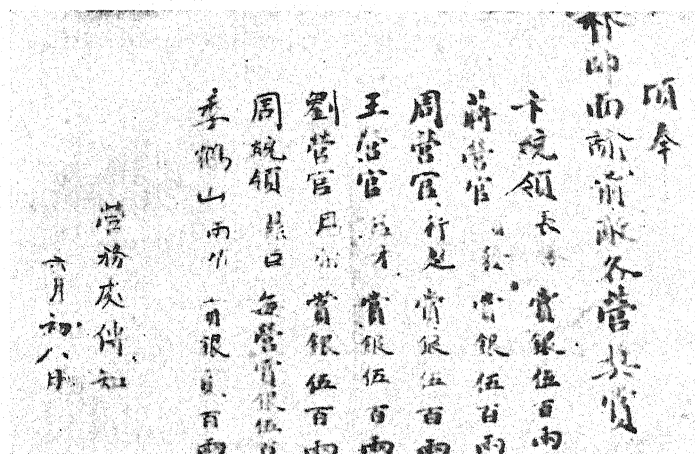 頃奉
帥面諭前敵各營共賞
卞統領長 賞銀伍百兩
蔣營官 賞銀伍百兩
周營官行 賞銀伍百兩
王營官 才賞銀伍百兩
劉營官 賞銀伍百兩
周統領 每營賞銀伍百
季鶴山兩 銀 百兩
營務處傳知
六月初八日